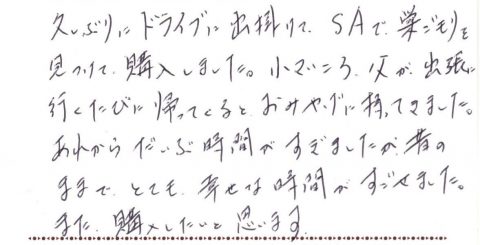 久しぶりにドライブに出掛けて、SAで、巣ごもりを
見つけて、購入しました。小さいころ、父が、出張に
行くたびに帰ってくると、おみやげに持ってきました。
あれからだいぶ時間がすぎましたが、昔の
ままで、とても、幸せな時間がすごせました。
また、購入したいと思います。